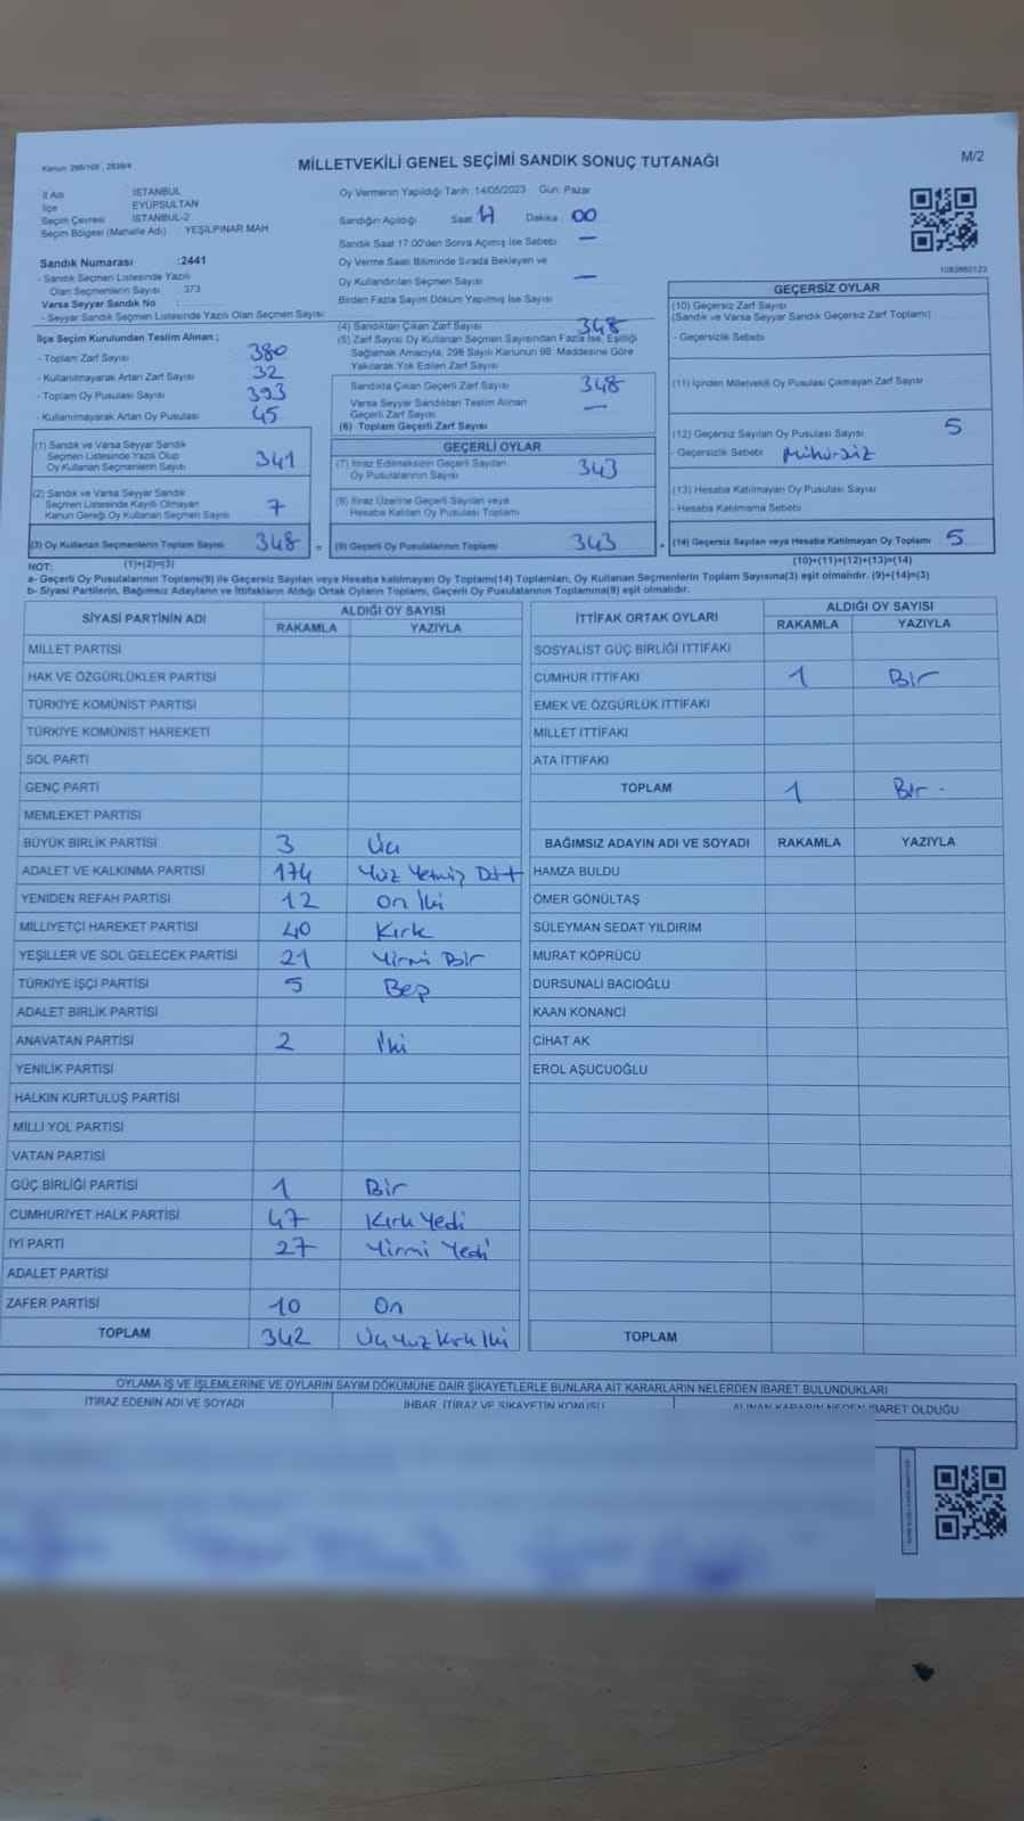 Kanun: 298/105 , 2839/4
MİLLETVEKİLİ GENEL SEÇİMİ SANDIK SONUÇ TUTANAĞI
M/2
İl Adı İSTANBUL
İlçe EYÜPSULTAN
Seçim Çevresi İSTANBUL-2
Seçim Bölgesi (Mahalle Adı) YEŞİLPINAR MAH
Oy Vermenin Yapıldığı Tarih :14/05/2023 Gün: Pazar
Sandığın Açıldığı Saat 17 Dakika : 00
Sandık Saat 17.00'den Sonra Açılmış İse Sebebi —
Oy Verme Saati Bitiminde Sırada Bekleyen ve
Oy Kullandırılan Seçmen Sayısı —
Birden Fazla Sayım Döküm Yapılmış İse Sayısı
Sandık Numarası :2441
- Sandık Seçmen Listesinde Yazılı
Olan Seçmenlerin Sayısı : 373
Varsa Seyyar Sandık No :
- Seyyar Sandık Seçmen Listesinde Yazılı Olan Seçmen Sayısı
İlçe Seçim Kurulundan Teslim Alınan ;
- Toplam Zarf Sayısı 380
- Kullanılmayarak Artan Zarf Sayısı 32
- Toplam Oy Pusulası Sayısı 393
- Kullanılmayarak Artan Oy Pusulası 45
(1) Sandık ve Varsa Seyyar Sandık
Seçmen Listesinde Yazılı Olup
Oy Kullanan Seçmenlerin Sayısı 341
(2) Sandık ve Varsa Seyyar Sandık
Seçmen Listesinde Kayıtlı Olmayan
Kanun Gereği Oy Kullanan Seçmen Sayısı 7
(3) Oy Kullanan Seçmenlerin Toplam Sayısı 348 =
(1)+(2)=(3)
(4) Sandıktan Çıkan Zarf Sayısı 348
(5) Zarf Sayısı Oy Kullanan Seçmen Sayısından Fazla İse, Eşitliği
Sağlamak Amacıyla, 298 Sayılı Kanunun 98. Maddesine Göre
Yakılarak Yok Edilen Zarf Sayısı
Sandıkta Çıkan Geçerli Zarf Sayısı 348
Varsa Seyyar Sandıktan Teslim Alınan
Geçerli Zarf Sayısı —
(6) Toplam Geçerli Zarf Sayısı
GEÇERLİ OYLAR
(7) İtiraz Edilmeksizin Geçerli Sayılan
Oy Pusulalarının Sayısı 343
(8) İtiraz Üzerine Geçerli Sayılan veya
Hesaba Katılan Oy Pusulası Toplamı
(9) Geçerli Oy Pusulalarının Toplamı 343 +
1083882123
GEÇERSİZ OYLAR
(10) Geçersiz Zarf Sayısı
(Sandık ve Varsa Seyyar Sandık Geçersiz Zarf Toplamı)
- Geçersizlik Sebebi
(11) İçinden Milletvekili Oy Pusulası Çıkmayan Zarf Sayısı
(12) Geçersiz Sayılan Oy Pusulası Sayısı 5
- Geçersizlik Sebebi Mühürsüz
(13) Hesaba Katılmayan Oy Pusulası Sayısı
- Hesaba Katılmama Sebebi
(14) Geçersiz Sayılan veya Hesaba Katılmayan Oy Toplamı 5
(10)+(11)+(12)+(13)=(14)
NOT:
a- Geçerli Oy Pusulalarının Toplamı(9) ile Geçersiz Sayılan veya Hesaba katılmayan Oy Toplamı(14) Toplamları, Oy Kullanan Seçmenlerin Toplam Sayısına(3) eşit olmalıdır. (9)+(14)=(3)
b- Siyasi Partilerin, Bağımsız Adayların ve İttifakların Aldığı Ortak Oyların Toplamı, Geçerli Oy Pusulalarının Toplamına(9) eşit olmalıdır.
SİYASİ PARTİNİN ADI ALDIĞI OY SAYISI
RAKAMLA YAZIYLA
MİLLET PARTİSİ
HAK VE ÖZGÜRLÜKLER PARTİSİ
TÜRKİYE KOMÜNİST PARTİSİ
TÜRKİYE KOMÜNİST HAREKETİ
SOL PARTİ
GENÇ PARTİ
MEMLEKET PARTİSİ
BÜYÜK BİRLİK PARTİSİ 3 Üç
ADALET VE KALKINMA PARTİSİ 174 Yüz Yetmiş Dört
YENİDEN REFAH PARTİSİ 12 On İki
MİLLİYETÇİ HAREKET PARTİSİ 40 Kırk
YEŞİLLER VE SOL GELECEK PARTİSİ 21 Yirmi Bir
TÜRKİYE İŞÇİ PARTİSİ 5 Beş
ADALET BİRLİK PARTİSİ
ANAVATAN PARTİSİ 2 İki
YENİLİK PARTİSİ
HALKIN KURTULUŞ PARTİSİ
MİLLİ YOL PARTİSİ
VATAN PARTİSİ
GÜÇ BİRLİĞİ PARTİSİ 1 Bir
CUMHURİYET HALK PARTİSİ 47 Kırk Yedi
İYİ PARTİ 27 Yirmi Yedi
ADALET PARTİSİ
ZAFER PARTİSİ 10 On
TOPLAM 342 Üç Yüz Kırk İki
İTTİFAK ORTAK OYLARI ALDIĞI OY SAYISI
RAKAMLA YAZIYLA
SOSYALİST GÜÇ BİRLİĞİ İTTİFAKI
CUMHUR İTTİFAKI 1 Bir
EMEK VE ÖZGÜRLÜK İTTİFAKI
MİLLET İTTİFAKI
ATA İTTİFAKI
TOPLAM 1 Bir -
BAĞIMSIZ ADAYIN ADI VE SOYADI RAKAMLA YAZIYLA
HAMZA BULDU
ÖMER GÖNÜLTAŞ
SÜLEYMAN SEDAT YILDIRIM
MURAT KÖPRÜCÜ
DURSUNALİ BACIOĞLU
KAAN KONANCİ
CİHAT AK
EROL AŞUCUOĞLU
TOPLAM
OYLAMA İŞ VE İŞLEMLERİNE VE OYLARIN SAYIM DÖKÜMÜNE DAİR ŞİKAYETLERLE BUNLARA AİT KARARLARIN NELERDEN İBARET BULUNDUKLARI
İTİRAZ EDENİN ADI VE SOYADI İHBAR, İTİRAZ VE ŞİKAYETİN KONUSU ALINAN KARARIN NEDEN İBARET OLDUĞU